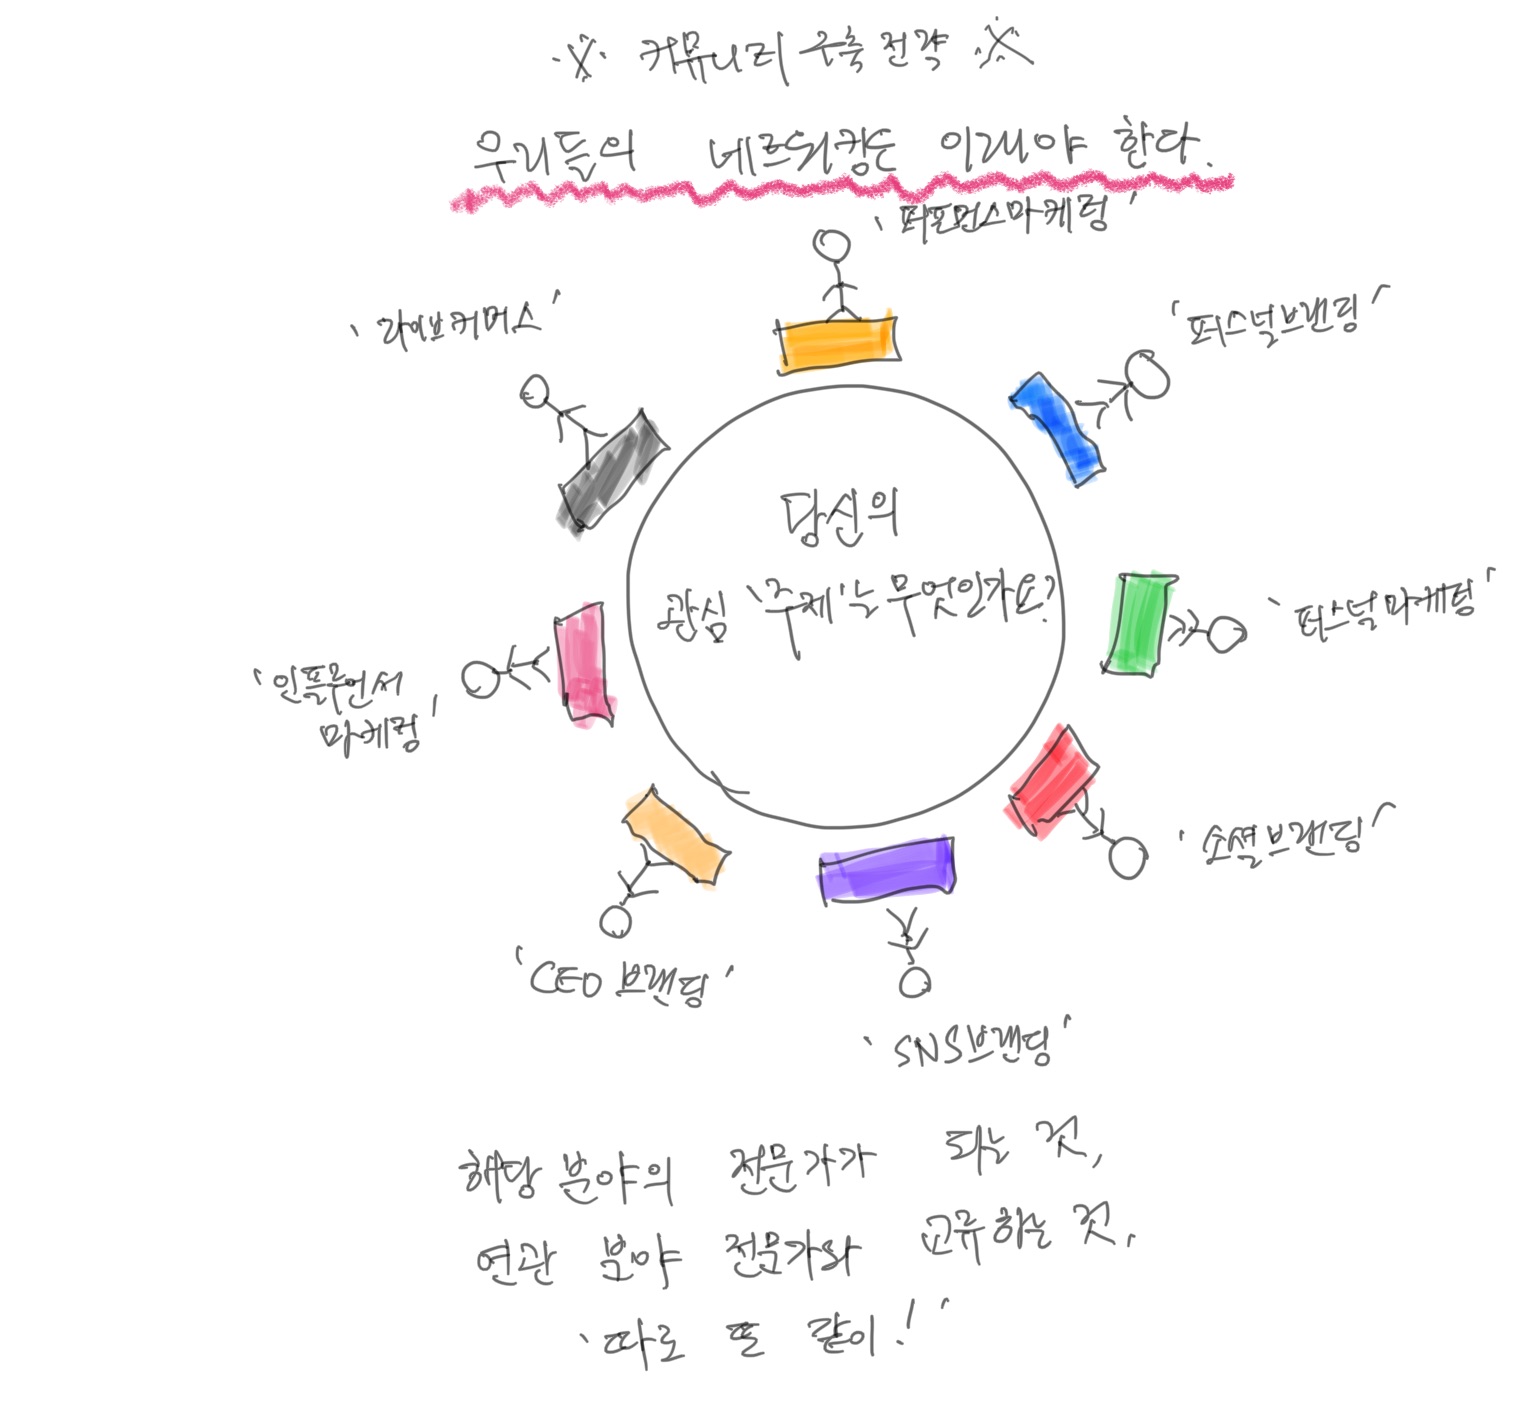 ※ 커뮤니티 구축 전략 ※
우리들의 네트워킹은 이래야 한다.
'퍼포먼스마케팅'
'라이브커머스'
'퍼스널브랜딩'
당신의
관심 '주제'는 무엇인가요?
'퍼스널마케팅'
'인플루언서
마케팅'
'소셜브랜딩'
'CEO 브랜딩'
'SNS브랜딩'
해당 분야의 전문가가 되는 것,
연관 분야 전문가와 교류하는 것,
'따로 또 같이!'